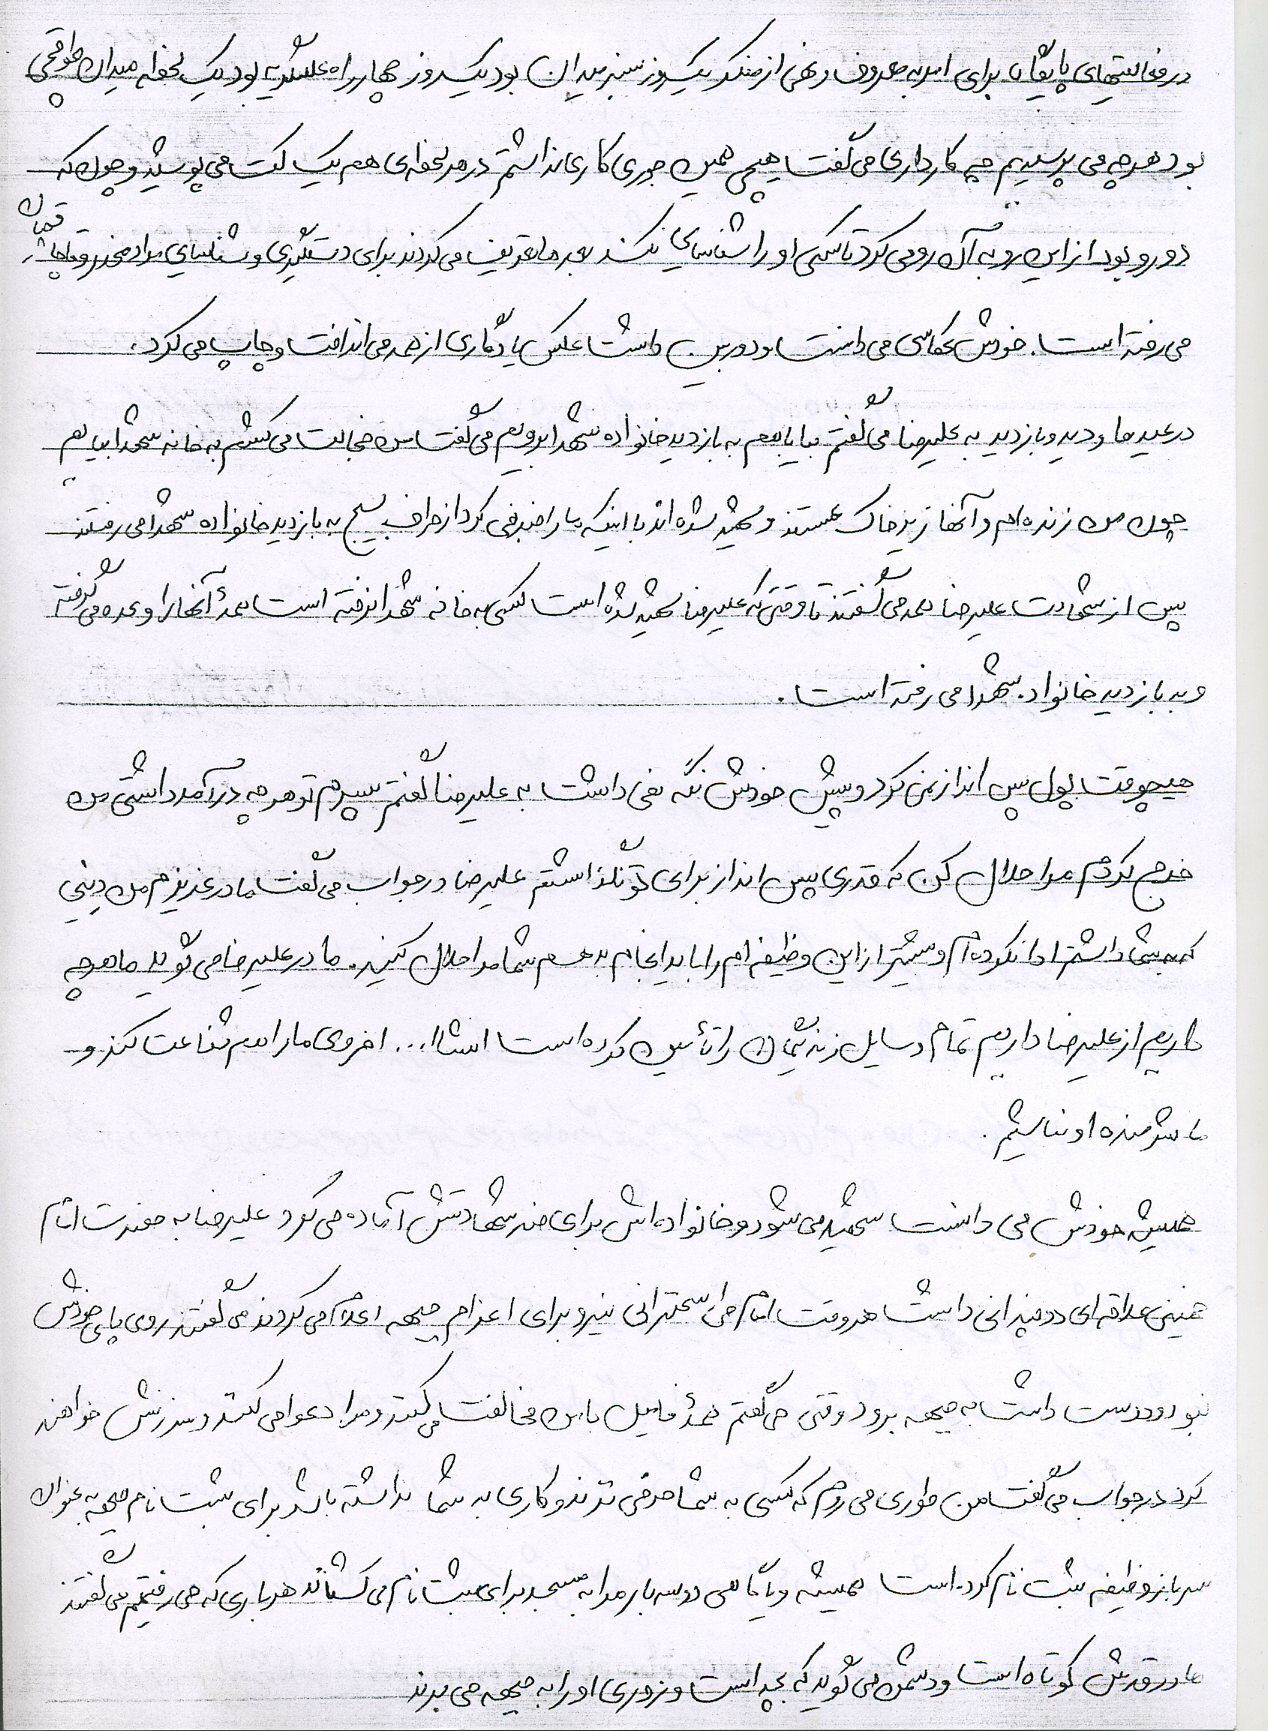 در فعالیتهای پایگاه برای امر به معروف و نهی از منکر یک روز سبزه میدان بود یک روز چهار راه عسگریه بود یک لحظه میدان طوقچی
بود هرچه می پرسیدیم چه کار داری می گفت هیچی همین جوری کاری نداشتم در هر لحظه ای هم یک کت می پوشید و چون که
دو رو بود از این رو به آن رو می کرد تا کسی او را شناسایی نکند بعد ها تعریف می کردند برای دستگیری و شناسایی مواد مخدر و قاچاقچیان
می رفته است. خودش عکاسی می دانست و دوربین داشت عکس یادگاری از همه می انداخت و چاپ می کرد.
در عید ها و دید و بازدید به علیرضا می گفتم بیا با هم به بازدید خانواده شهدا برویم می گفت من خجالت می کشم به خانه شهدا بیایم
چون من زنده ام و آنها زیر خاک هستند و شهید شده اند با اینکه ما را خبر نمی کرد از طرف بسیج به بازدید خانواده شهدا می رفتند
پس از شهادت علیرضا همه می گفتند تا وقتی که علیرضا شهید شده است کسی به خانه شهدا نرفته است همهٔ آنها را وعده می گرفته
و به بازدید خانواده شهدا می رفته است.
هیچوقت پول پس انداز نمی کرد و پیش خودش نگه نمی داشت به علیرضا گفتم پسرم تو هر چه درآمد داشتی من
خرج کردم مرا حلال کن که قدری پس انداز برای تو نگذاشتم علیرضا در جواب می گفت مادر عزیزم من دینی
که به شما داشتم ادا نکرده ام و بیشتر از این وظیفه ام را باید انجام بدهم شما مرا حلال کنید. مادر علیرضا می گوید ما هر چه
داریم از علیرضا داریم تمام وسایل زندگیمان را تأمین کرده است انشاا... اخروی ما را هم شفاعت کند و
ما شرمنده او نباشیم.
همیشه خودش می دانست شهید می شود و خانواده اش برای خبر شهادتش آماده می کرد علیرضا به حضرت امام
خمینی علاقه ای دو چندانی داشت هر وقت امام سخنرانی نیرو برای اعزام جبهه اعلام می کردند می گفتند روی پای خودش
نبود و دوست داشت به جبهه برود وقتی می گفتم همهٔ فامیل با من مخالفت می کنند و مرا دعوا می کنند و سرزنش خواهند
کرد در جواب می گفت من طوری می روم که کسی به شما حرفی نزند و کاری به شما نداشته باشد برای ثبت نام جبهه به عنوان
سرباز وظیفه ثبت نام کرده است همیشه و یا گاهی دو سه بار مرا به مسجد برای ثبت نام می کشاند هر باری که می رفتیم می گفتند
مادر قدش کوتاه است و دشمن می گوید که بچه است و زوری او را به جبهه می برند